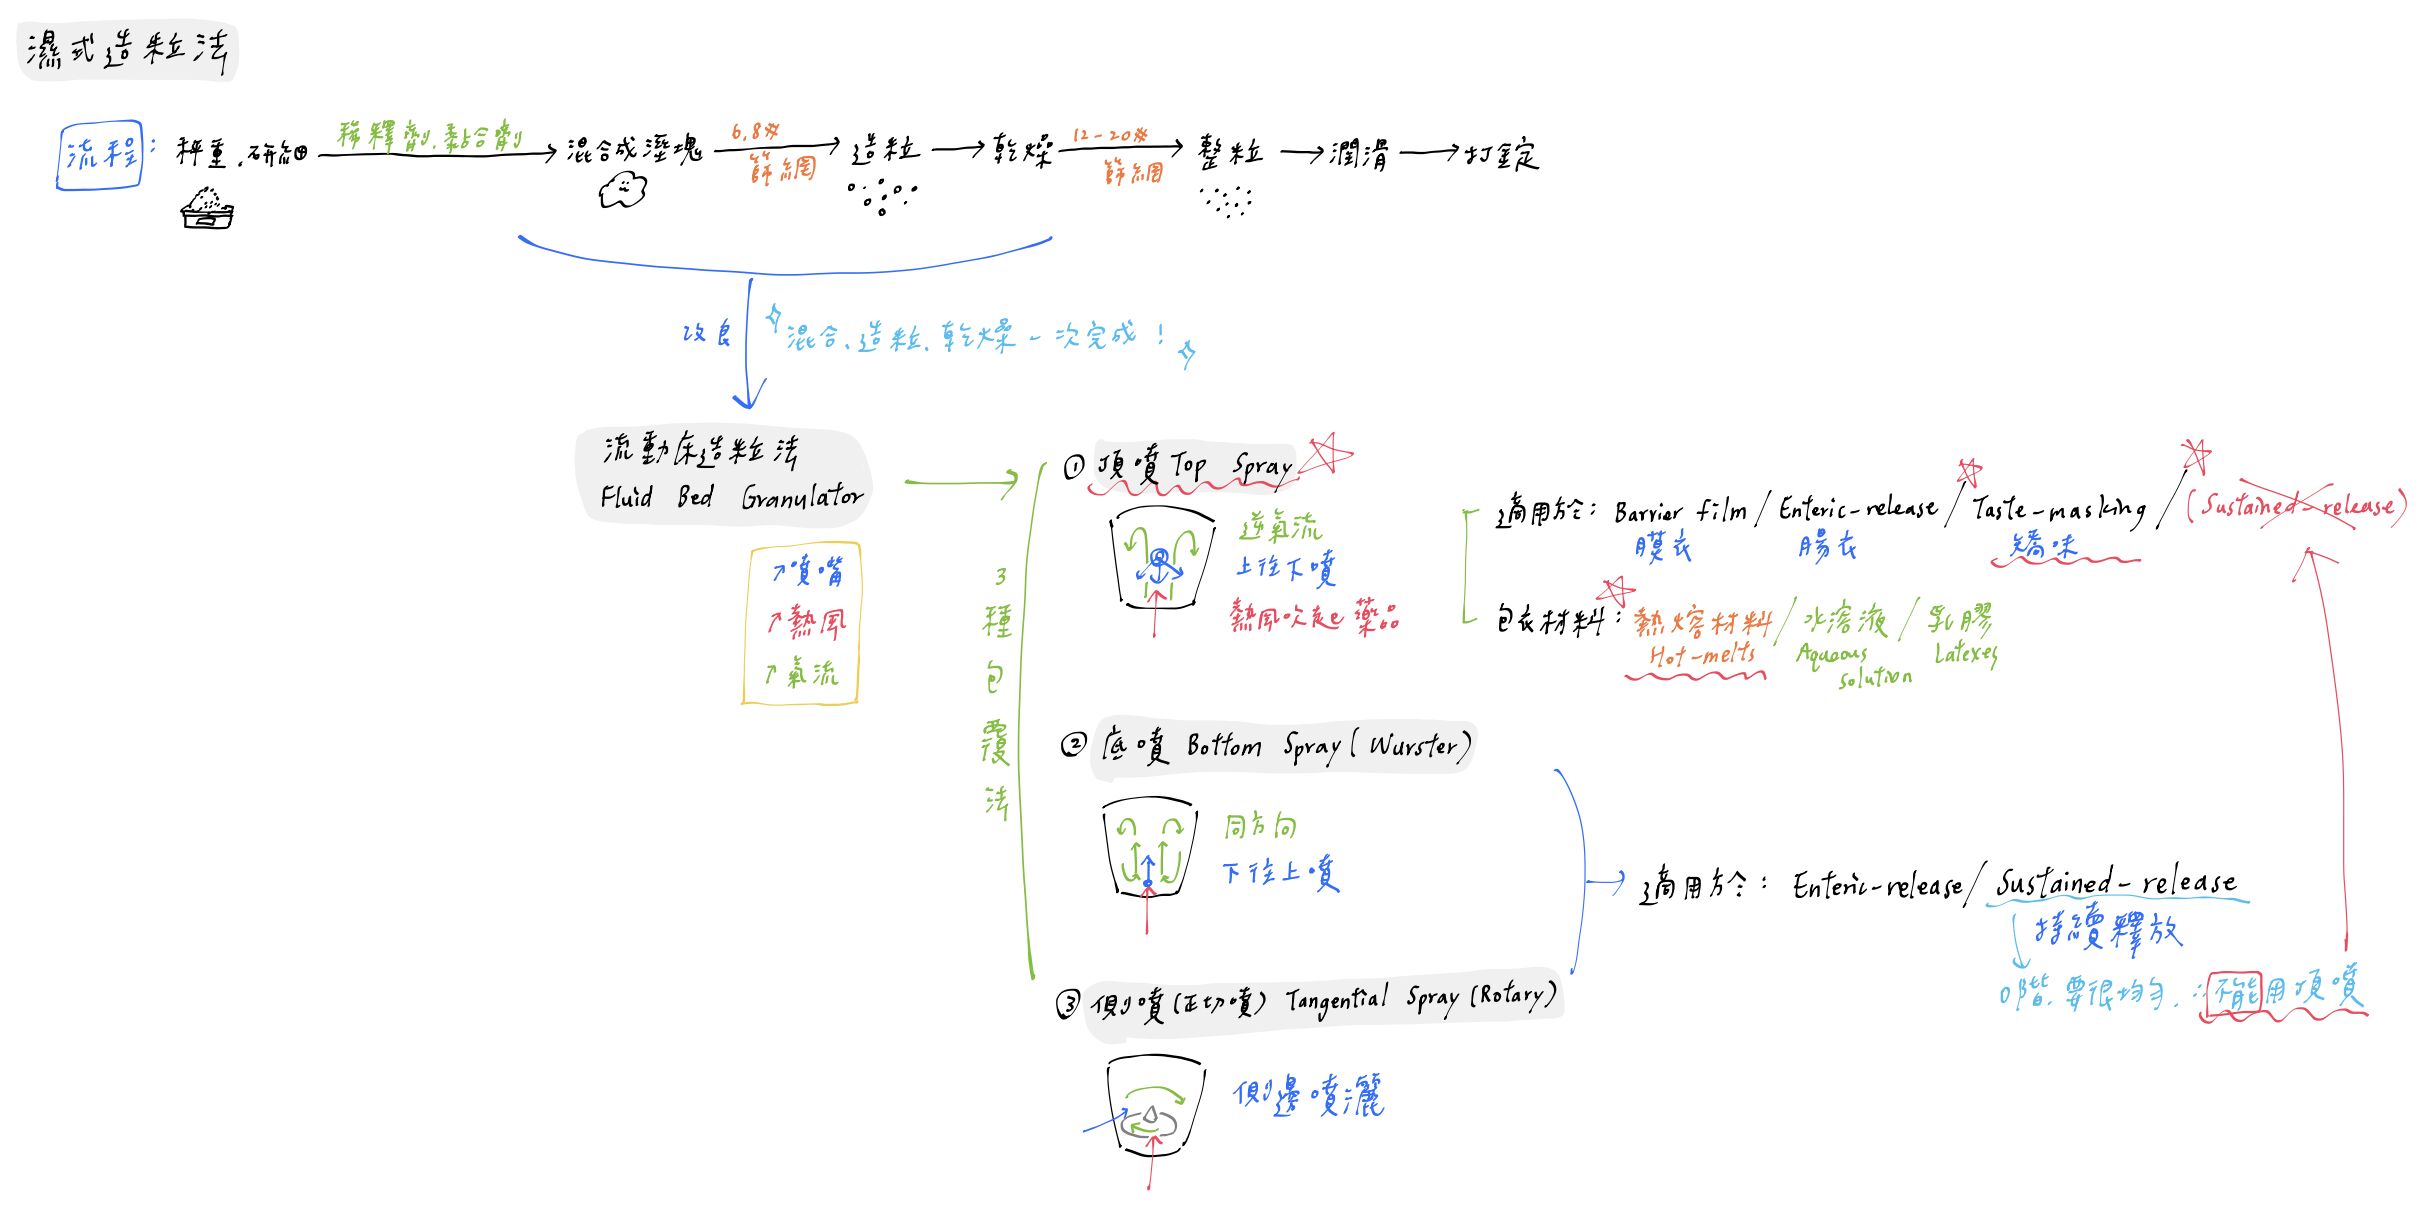 濕式造粒法
流程：秤重、研細 稀釋劑、黏合劑 混合成溼塊 6,8# 篩網 造粒 乾燥 12-20# 篩網 整粒 潤滑 打錠
改良 混合、造粒、乾燥一次完成！
流動床造粒法
Fluid Bed Granulator
噴嘴
熱風
氣流
3種包覆法
① 頂噴 Top Spray
逆氣流
上往下噴
熱風吹起藥品
適用於：Barrier film / Enteric-release / Taste-masking / (Sustained-release)
膜衣 腸衣 矯味
包衣材料：熱熔材料 / 水溶液 / 乳膠
Hot-melts Aqueous solution Latexes
② 底噴 Bottom Spray (Wurster)
同方向
下往上噴
適用於：Enteric-release / Sustained-release
持續釋放
0階、要很均勻、∴不能用頂噴
③ 側噴(正切噴) Tangential Spray (Rotary)
側邊噴灑